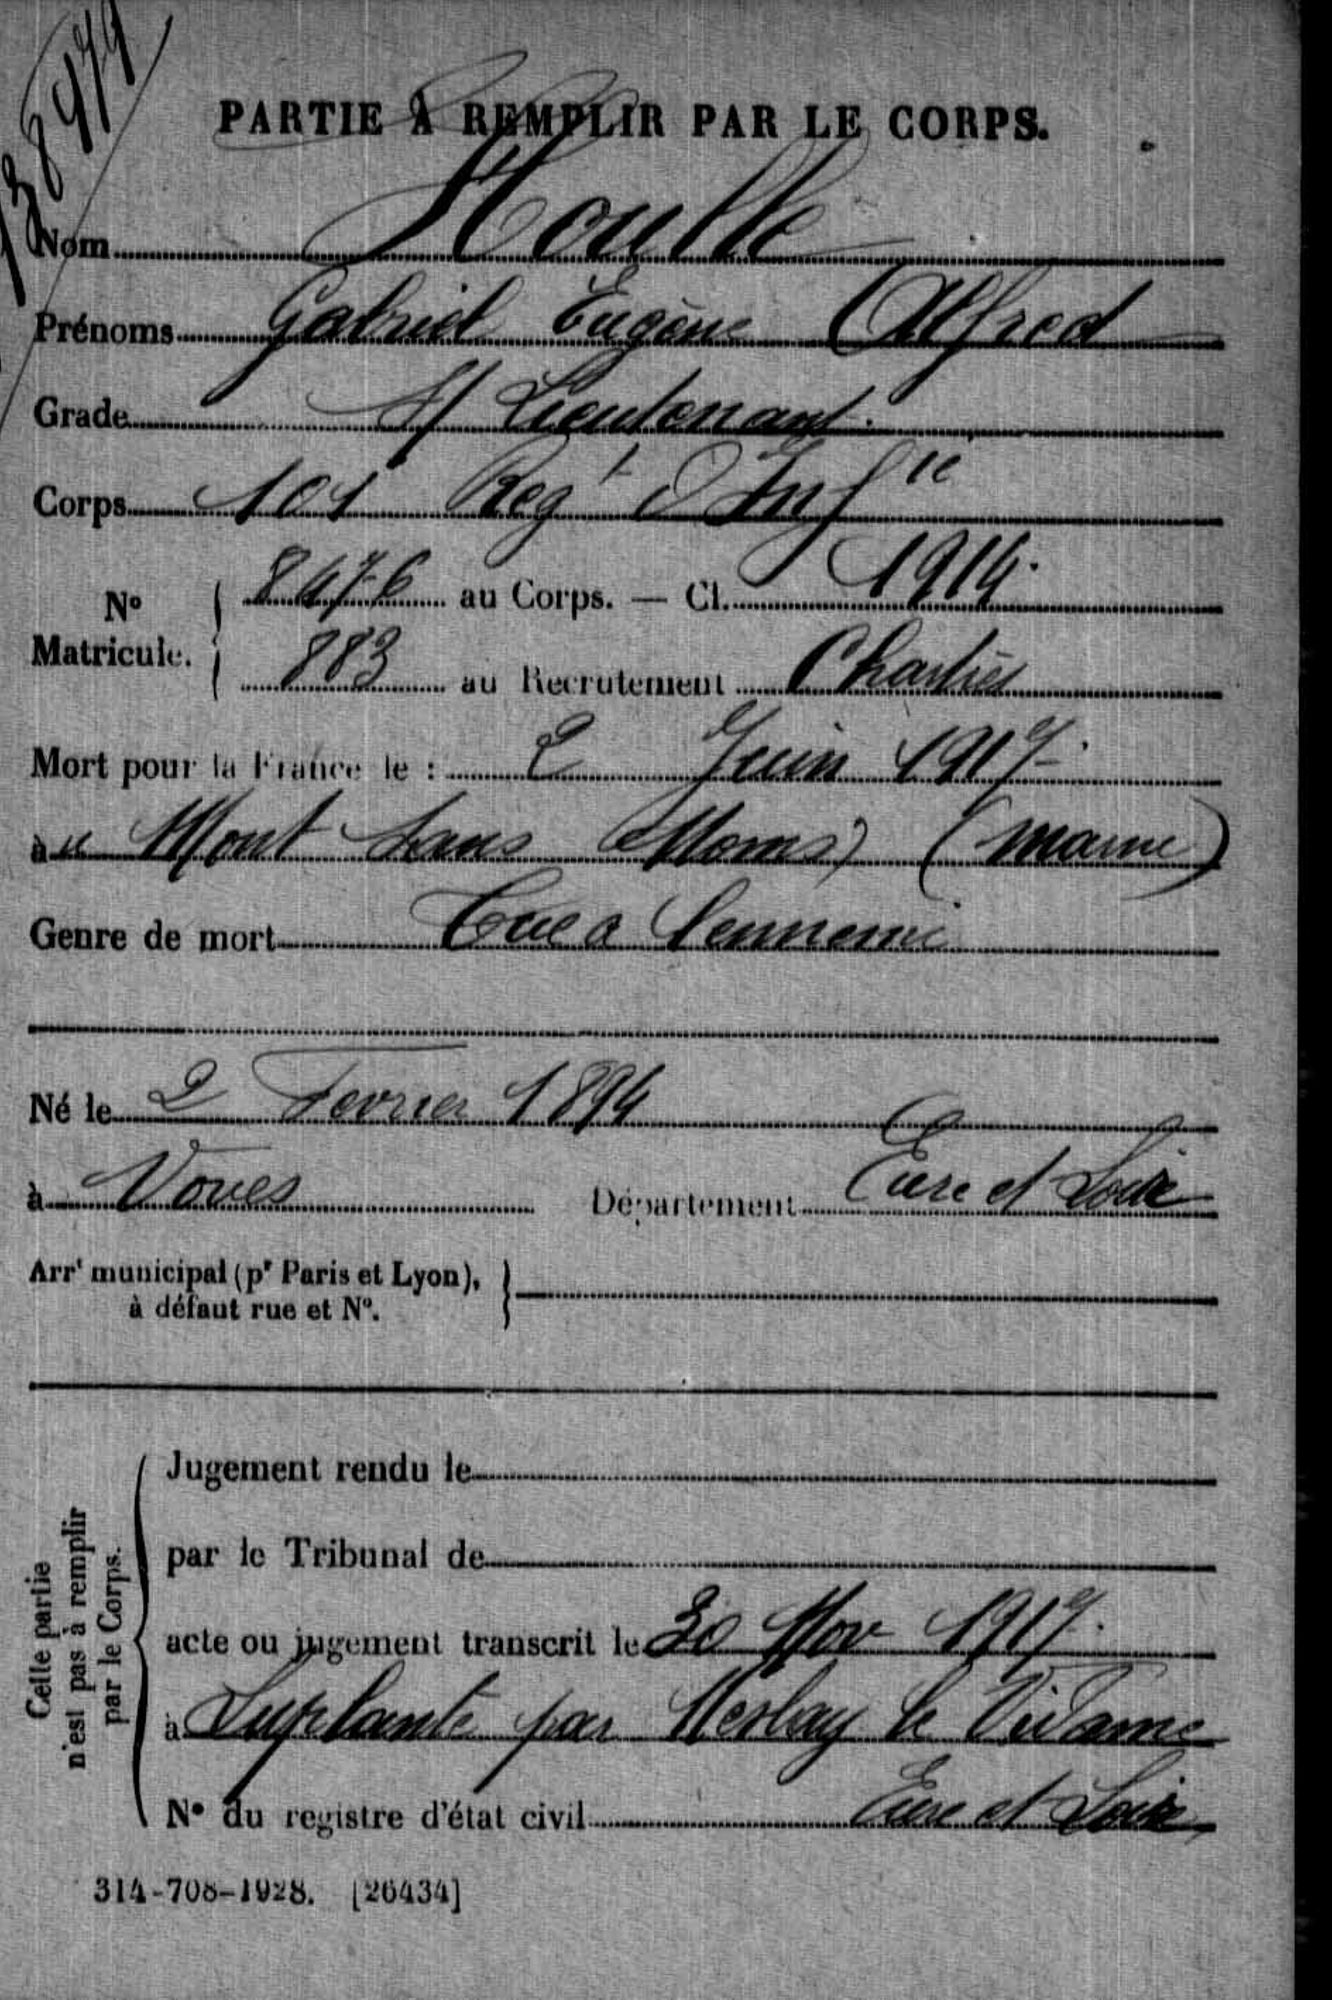 PARTIE À REMPLIR PAR LE CORPS.
Nom Houlle
Prénoms Gabriel Eugène Alfred
Grade S/ Lieutenant.
Corps 101 Regt d'Infie
No Matricule. 8476 au Corps. — Cl. 1914.
883 au Recrutement Chartres
Mort pour la France le : 2 Juin 1917
à u Mont Sans (Marne)
Genre de mort Tué a l'ennemi
Né le 2 Fevrier 1894
à Voves Département Eure et Loir
Arrt municipal (pr Paris et Lyon),
à défaut rue et No.
Jugement rendu le
par le Tribunal de
acte ou jugement transcrit le 30 Nov 1917.
à Luplanté par Meslay le Vidame
No du registre d'état civil Eure et Loir
Cette partie
n'est pas à remplir
par le Corps.
314-708-1928. [26434]